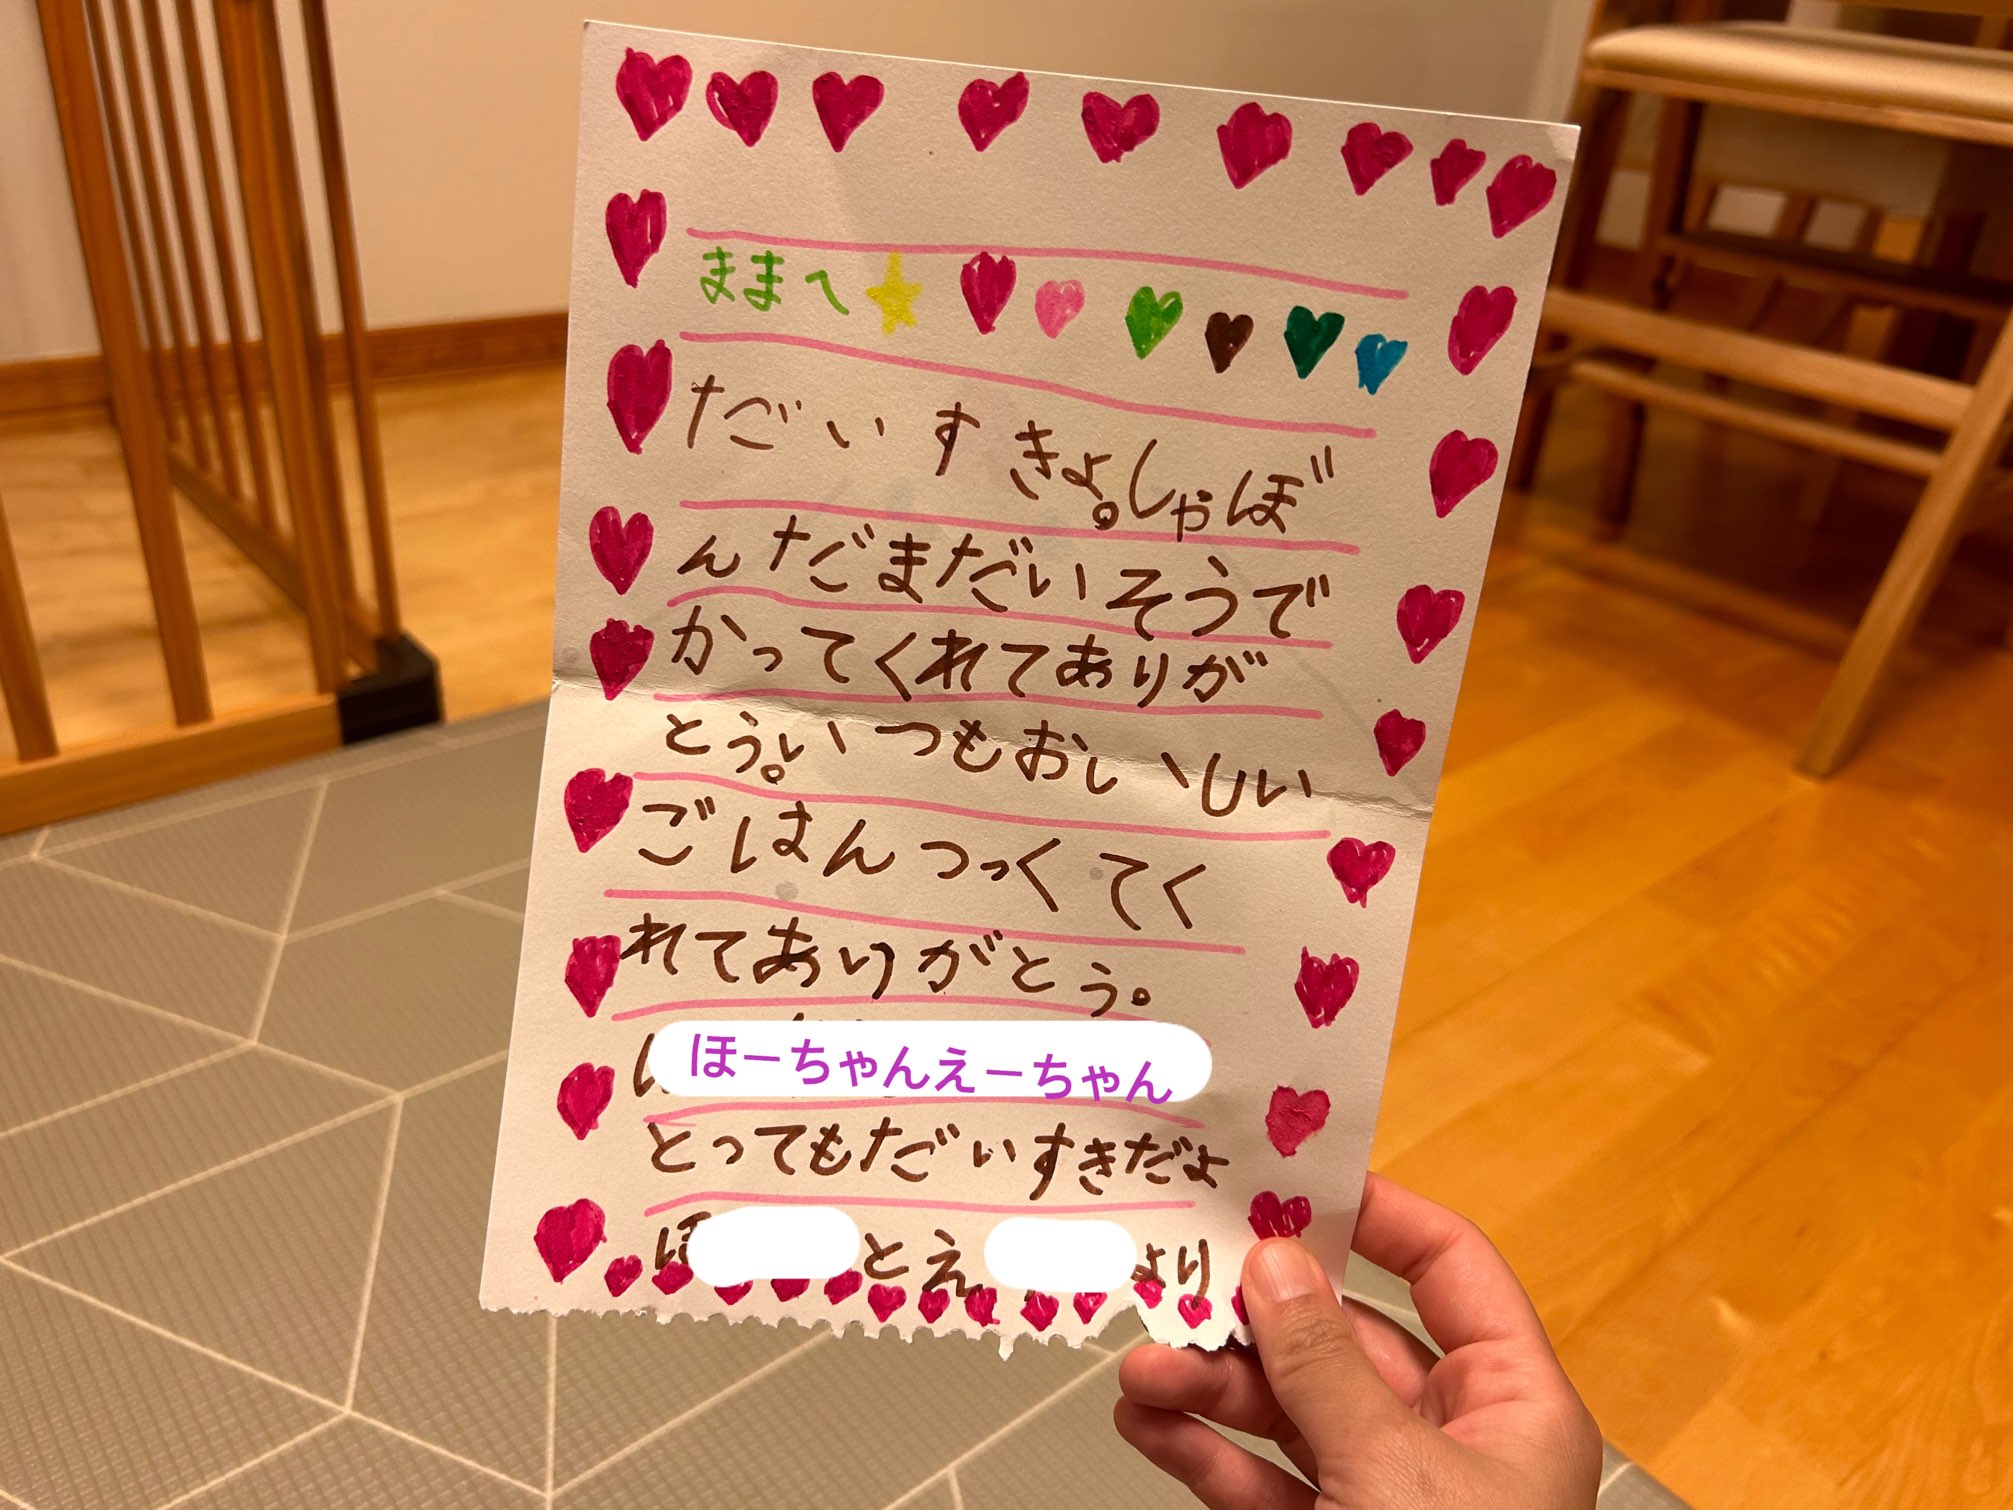 ままへ
だいすきよ。しゃぼ
んだまだいそうで
かってくれてありが
とう。いつもおいしい
ごはんつっくてく
れてありがとう。
ほーちゃんえーちゃん
とってもだいすきだよ
ほ とえ より